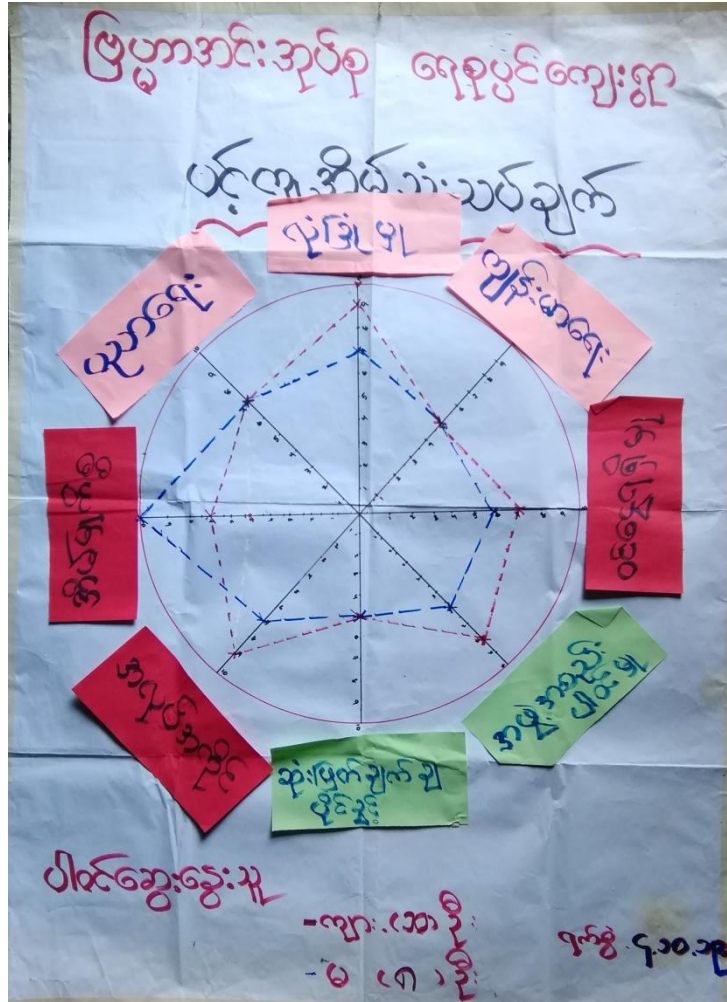 ဗြဟ္မာအင်းအုပ်စု ရေစုပ္ပင်ကျေးရွာ
ပင့်ကူအိမ်သုံးသပ်ချက်
လုံခြုံမှု
ကျန်းမာရေး
ဝင်ငွေရရှိမှု
အဖွဲ့အစည်း
ပါဝင်မှု
ဆုံးဖြတ်ချက်ချ
ပိုင်ခွင့်
အလုပ်အကိုင်
အိမ်မှုကိစ္စ
ပညာရေး
ပါဝင်ဆွေးနွေးသူ
-ကျား (၁၁) ဦး
- မ (၈) ဦး
ရက်စွဲ